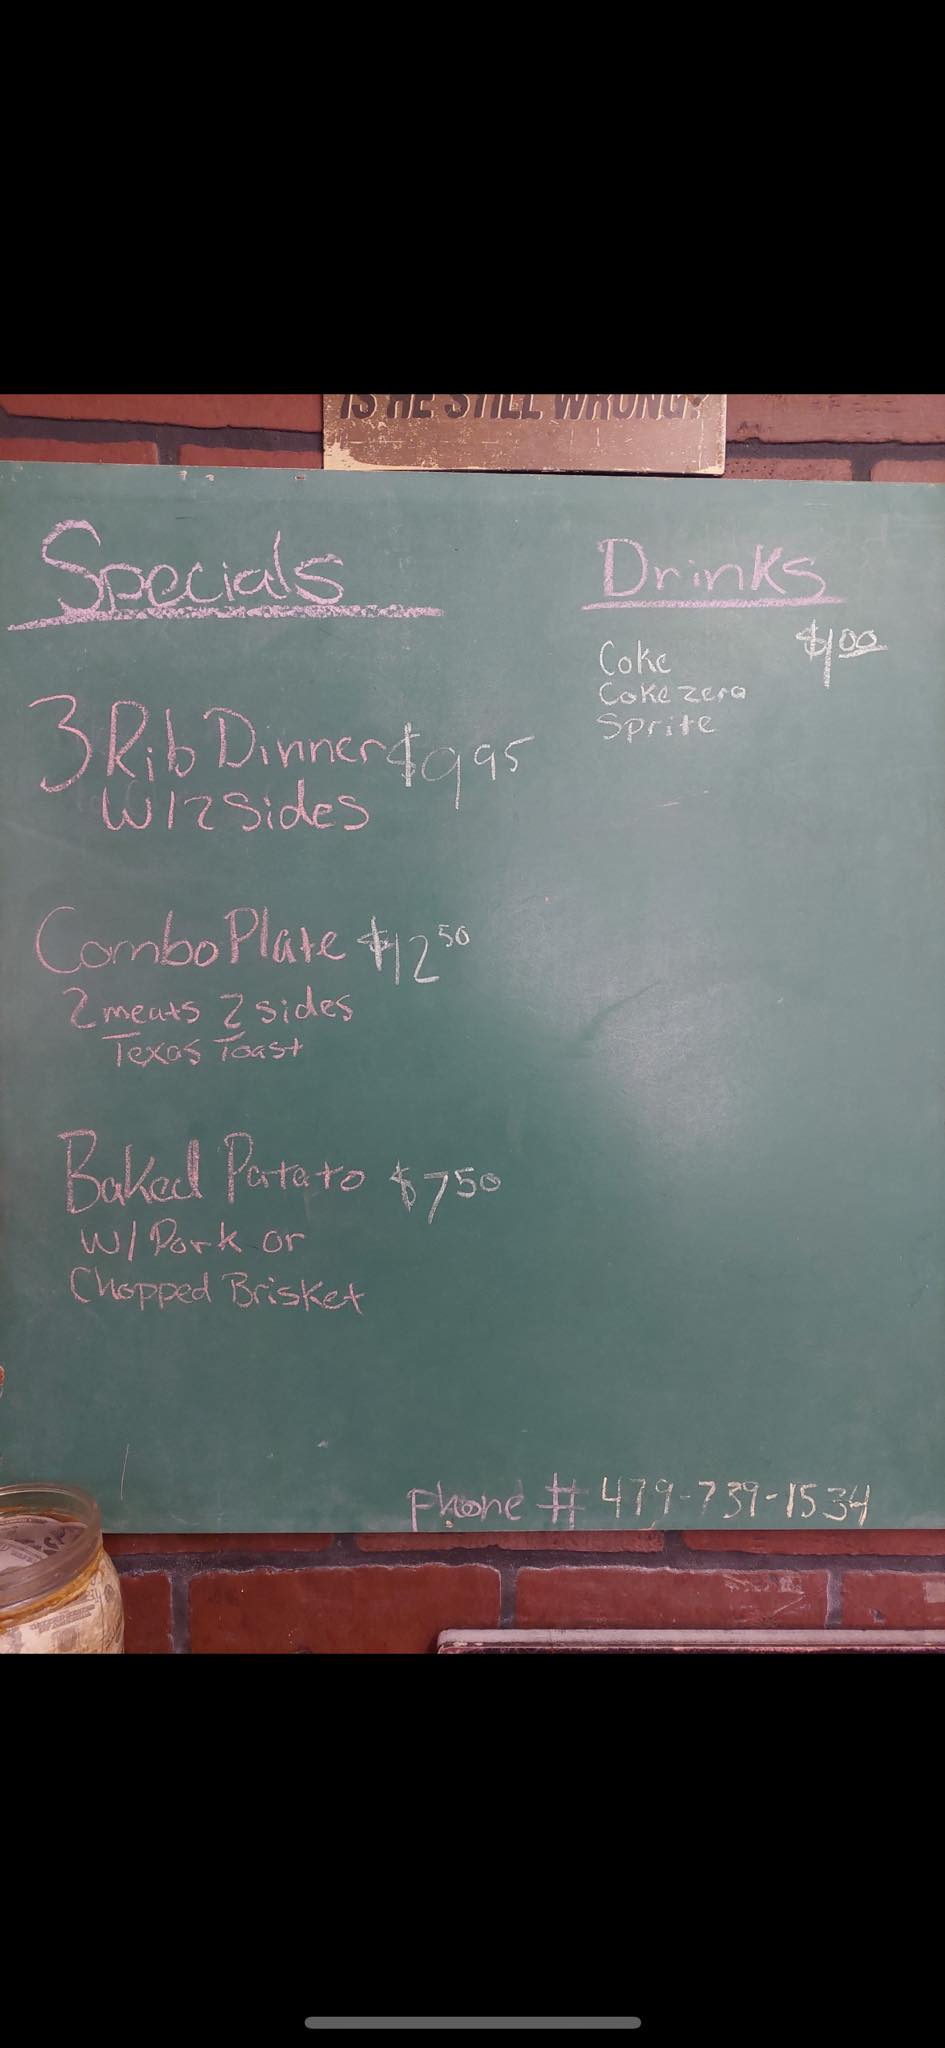 IS HE STILL WRONG?
Specials
3 Rib Dinner $9.95
W/2 Sides
Combo Plate $12.50
2 meats 2 sides
Texas Toast
Baked Patato $7.50
w/ Pork or
Chopped Brisket
Drinks
Coke $1.00
Coke zero
Sprite
phone # 479-739-1534